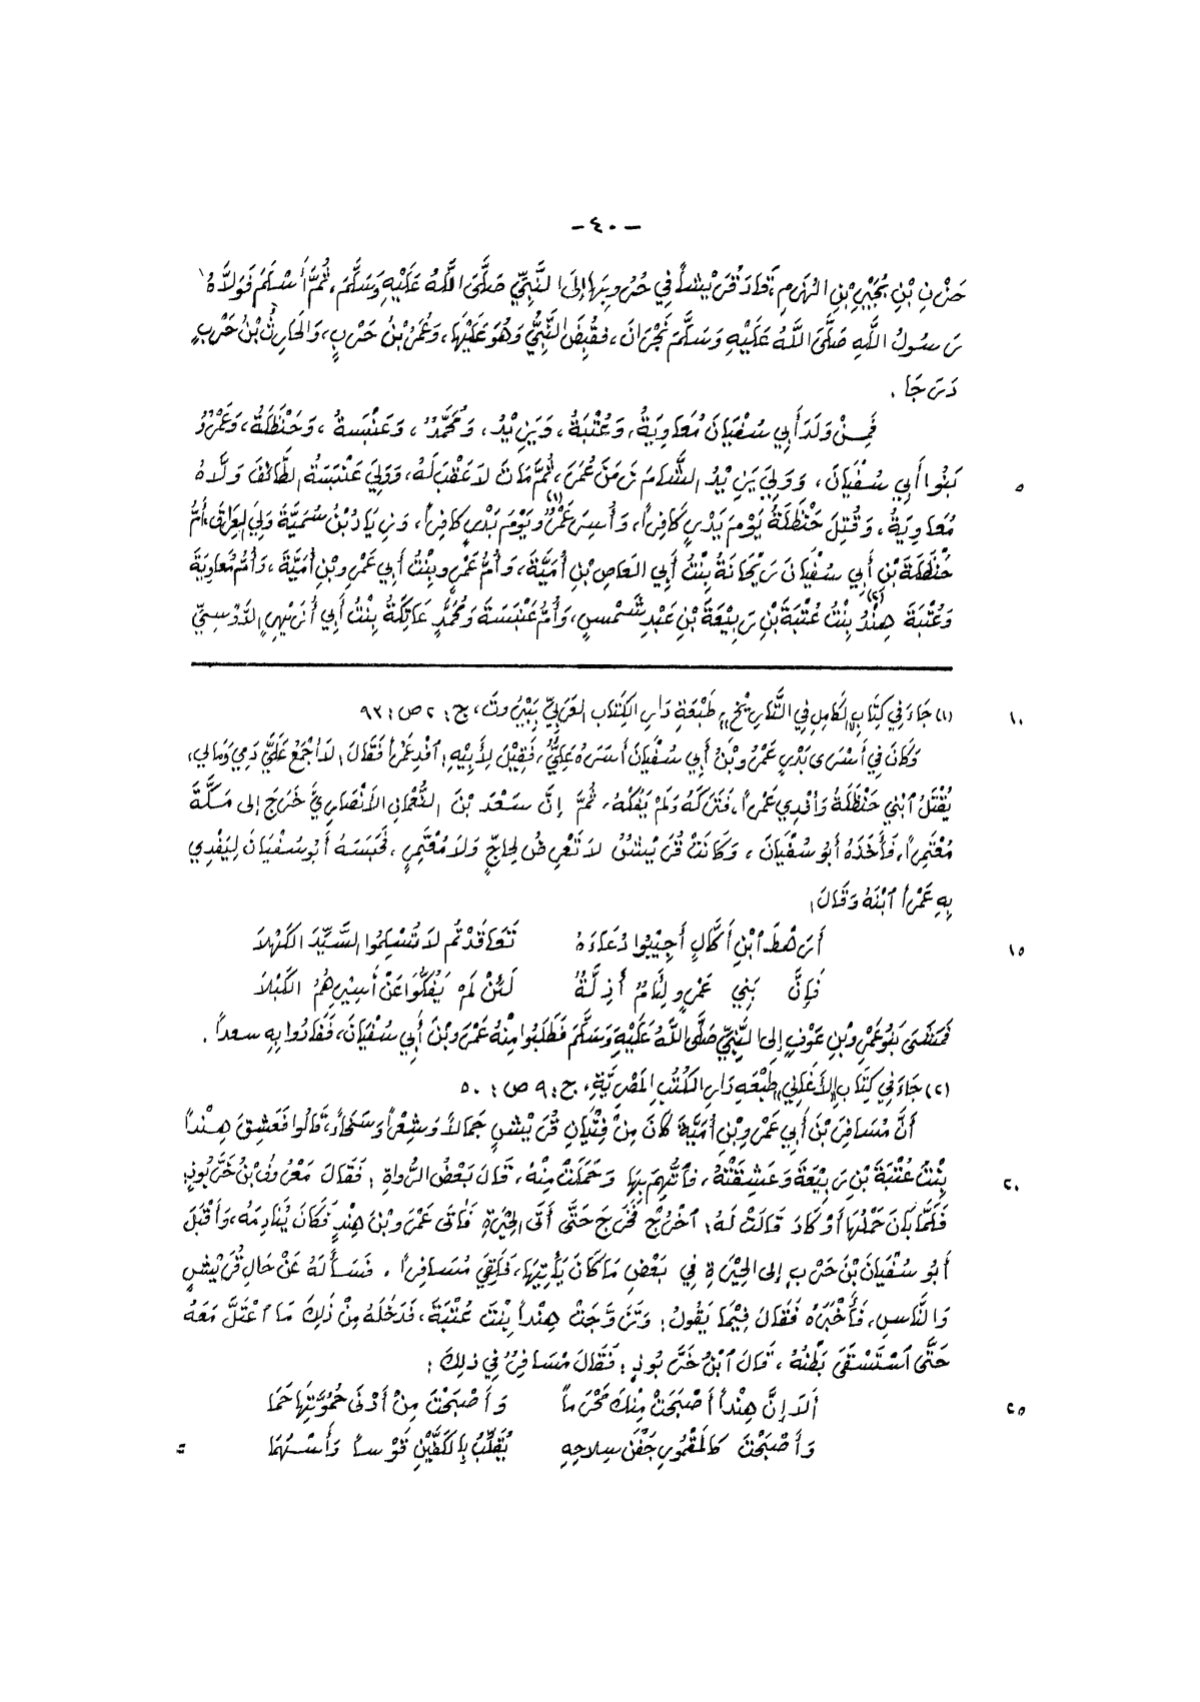 -٤٠-
حَزْنِ بْنِ بُجَيْرِ بْنِ الهُزَمِ، قَادَ قُرَيْشاً فِي حُرُوبِهَا إِلَى النَّبِيِّ صَلَّى اللَّهُ عَلَيْهِ وَسَلَّمَ، ثُمَّ أَسْلَمَ فَوَلَّاهُ
رَسُولُ اللَّهِ صَلَّى اللَّهُ عَلَيْهِ وَسَلَّمَ نَجْرَانَ، فَقُبِضَ النَّبِيُّ وَهُوَ عَلَيْهَا، وَعُمَرُ بْنُ حَرْبٍ، وَالحَارِثُ بْنُ حَرْبٍ
دَرَجَا .
فَمِنْ وَلَدِ أَبِي سُفْيَانَ مُعَاوِيَةُ، وَعُتْبَةُ، وَيَزِيْدُ، وَمُحَمَّدٌ، وَعَنْبَسَةُ، وَحَنْظَلَةُ، وَعَمْرُو
بَنُوا أَبِي سُفْيَانَ، وَوَلِيَ يَزِيْدُ الشَّامَ زَمَنَ عُمَرَ، ثُمَّ مَاتَ لاَ عَقْبَ لَهُ، وَوَلِيَ عَنْبَسَةُ الطَّائِفَ وَلَّاهُ ٥
مُعَاوِيَةُ، وَقُتِلَ حَنْظَلَةُ يَوْمَ بَدْرٍ كَافِراً، وَأُسِرَ عَمْرُو(١) يَوْمَ بَدْرٍ كَافِراً، وَزِيَادُ بْنُ سُمَيَّةَ وَلِيَ العِرَاقَ، أُمُّ
حَنْظَلَةَ بْنِ أَبِي سُفْيَانَ رَيْحَانَةُ بِنْتُ أَبِي العَاصِ بْنِ أُمَيَّةَ، وَأُمُّ عَمْرٍو بِنْتُ أَبِي عَمْرِو بْنِ أُمَيَّةَ، وَأُمُّ مُعَاوِيَةَ
وَعُتْبَةَ هِنْدُ(٢) بِنْتُ عُتْبَةَ بْنِ رَبِيْعَةَ بْنِ عَبْدِ شَمْسٍ، وَأُمُّ عَنْبَسَةَ وَمُحَمَّدٍ عَاتِكَةُ بِنْتُ أَبِي أُزَيْهِرٍ الدَّوْسِيِّ
(١) جَاءَ فِي كِتَابِ «الكَامِلِ فِي التَّارِيْخِ» طَبْعَةِ دَارِ الكِتَابِ العَرَبِيِّ بَيْرُوتَ، ج: ٢ ص: ٩٣ ١٠
وَكَانَ فِي أَسْرَى بَدْرٍ عَمْرُو بْنُ أَبِي سُفْيَانَ أَسَرَهُ عَلِيٌّ، فَقِيْلَ لِأَبِيْهِ: اَفْدِ عَمْراً فَقَالَ: لاَ أَجْمَعُ عَلَيَّ دَمِي وَمَالِي،
يُقْتَلُ اَبْنِي حَنْظَلَةُ وَأَفْدِي عَمْراً، فَتَرَكَهُ وَلَمْ يَفُكَّهُ، ثُمَّ إِنَّ سَعْدَ بْنَ النُّعْمَانِ الأَنْصَارِيَّ خَرَجَ إِلى مَكَّةَ
مُعْتَمِراً، فَأَخَذَهُ أَبُو سُفْيَانَ، وَكَانَتْ قُرَيْشُ لاَ تَعْرِضُ لِحَاجٍّ وَلاَ مُعْتَمِرٍ، فَحَبَسَهُ أَبُو سُفْيَانَ لِيَفْدِي
بِهِ عَمْراً اَبْنَهُ وَقَالَ:
أَرَهْطَ اَبْنِ أَكَّالٍ أَجِيْبُوا دُعَاءَهُ تَعَاقَدْتُم لاَ تُسْلِمُوا السَّيِّدَ الكَهْلاَ ١٥
فَإِنَّ بَنِي عَمْرٍو لِئَامٌ أَذِلَّةٌ لَئِنْ لَمْ يَفُكُّوا عَنْ أَسِيْرِهِمُ الكَبْلاَ
فَمَشَى بَنُو عَمْرِو بْنِ عَوْفٍ إِلَى النَّبِيِّ صَلَّى اللَّهُ عَلَيْهِ وَسَلَّمَ فَطَلَبُوا مِنْهُ عَمْرَو بْنَ أَبِي سُفْيَانَ، فَفَادُوا بِهِ سعداً .
(٢) جَاءَ فِي كِتَابِ «الأَغَانِي» طَبْعَةِ دَارِ الكُتُبِ المَصْرِيَّةِ، ج: ٩ ص: ٥٠
أَنَّ مُسَافِرَ بْنَ أَبِي عَمْرِو بْنِ أُمَيَّةَ كَانَ مِنْ فِتْيَانِ قُرَيْشٍ جَمَالاً وَشِعْراً وَسَخَاءً، قَالُوا فَعَشِقَ هِنْداً
بِنْتَ عُتْبَةَ بْنِ رَبِيْعَةَ وَعَشِقَتْهُ، فَاَتُّهِمَ بِهَا وَحَمَلَتْ مِنْهُ، قَالَ بَعْضُ الرُّوَاةِ: فَقَالَ مَعْرُوفُ بْنُ خَرَّبُوذٍ: ٢٠
فَلَمَّا بَانَ حَمْلُهَا أَوْ كَادَ قَالَتْ لَهُ: اَخْرُجْ فَخَرَجَ حَتَّى أَتَى الحِيْرَةَ فَأَتَى عَمْرَو بْنَ هِنْدٍ فَكَانَ يُنَادِمُهُ، وَأَقْبَلَ
أَبُو سُفْيَانَ بْنُ حَرْبٍ إِلى الحِيْرَةِ فِي بَعْضِ مَا كَانَ يَأْتِيْهَا، فَلَقِيَ مُسَافِراً . فَسَأَلَهُ عَنْ حَالِ قُرَيْشٍ
وَالنَّاسِ، فَأَخْبَرَهُ فَقَالَ فِيْمَا يَقُولُ: وَتَزَوَّجَتْ هِنْداً بِنْتَ عُتْبَةَ، فَدَخَلَهُ مِنْ ذَلِكَ مَا اَعْتَلَّ مَعَهُ
حَتَّى اَسْتَسْقَى بَطْنُهُ، قَالَ اَبْنُ خَرَّبُوذٍ: فَقَالَ مُسَافِرٌ فِي ذَلِكَ:
أَلاَ إِنَّ هِنْداً أَصْبَحَتْ مِنْكَ مَحْرَماً وَأَصْبَحْتَ مِنْ أَدْنَى حُمُوَّتِهَا حَمَا ٢٥
وَأَصْبَحْتَ كَالمَقْمُورِ جَفْنَ سِلاَحِهِ يُقَلِّبُ بِالكَفَّيْنِ قَوْساً وَأَسْهُمَا =